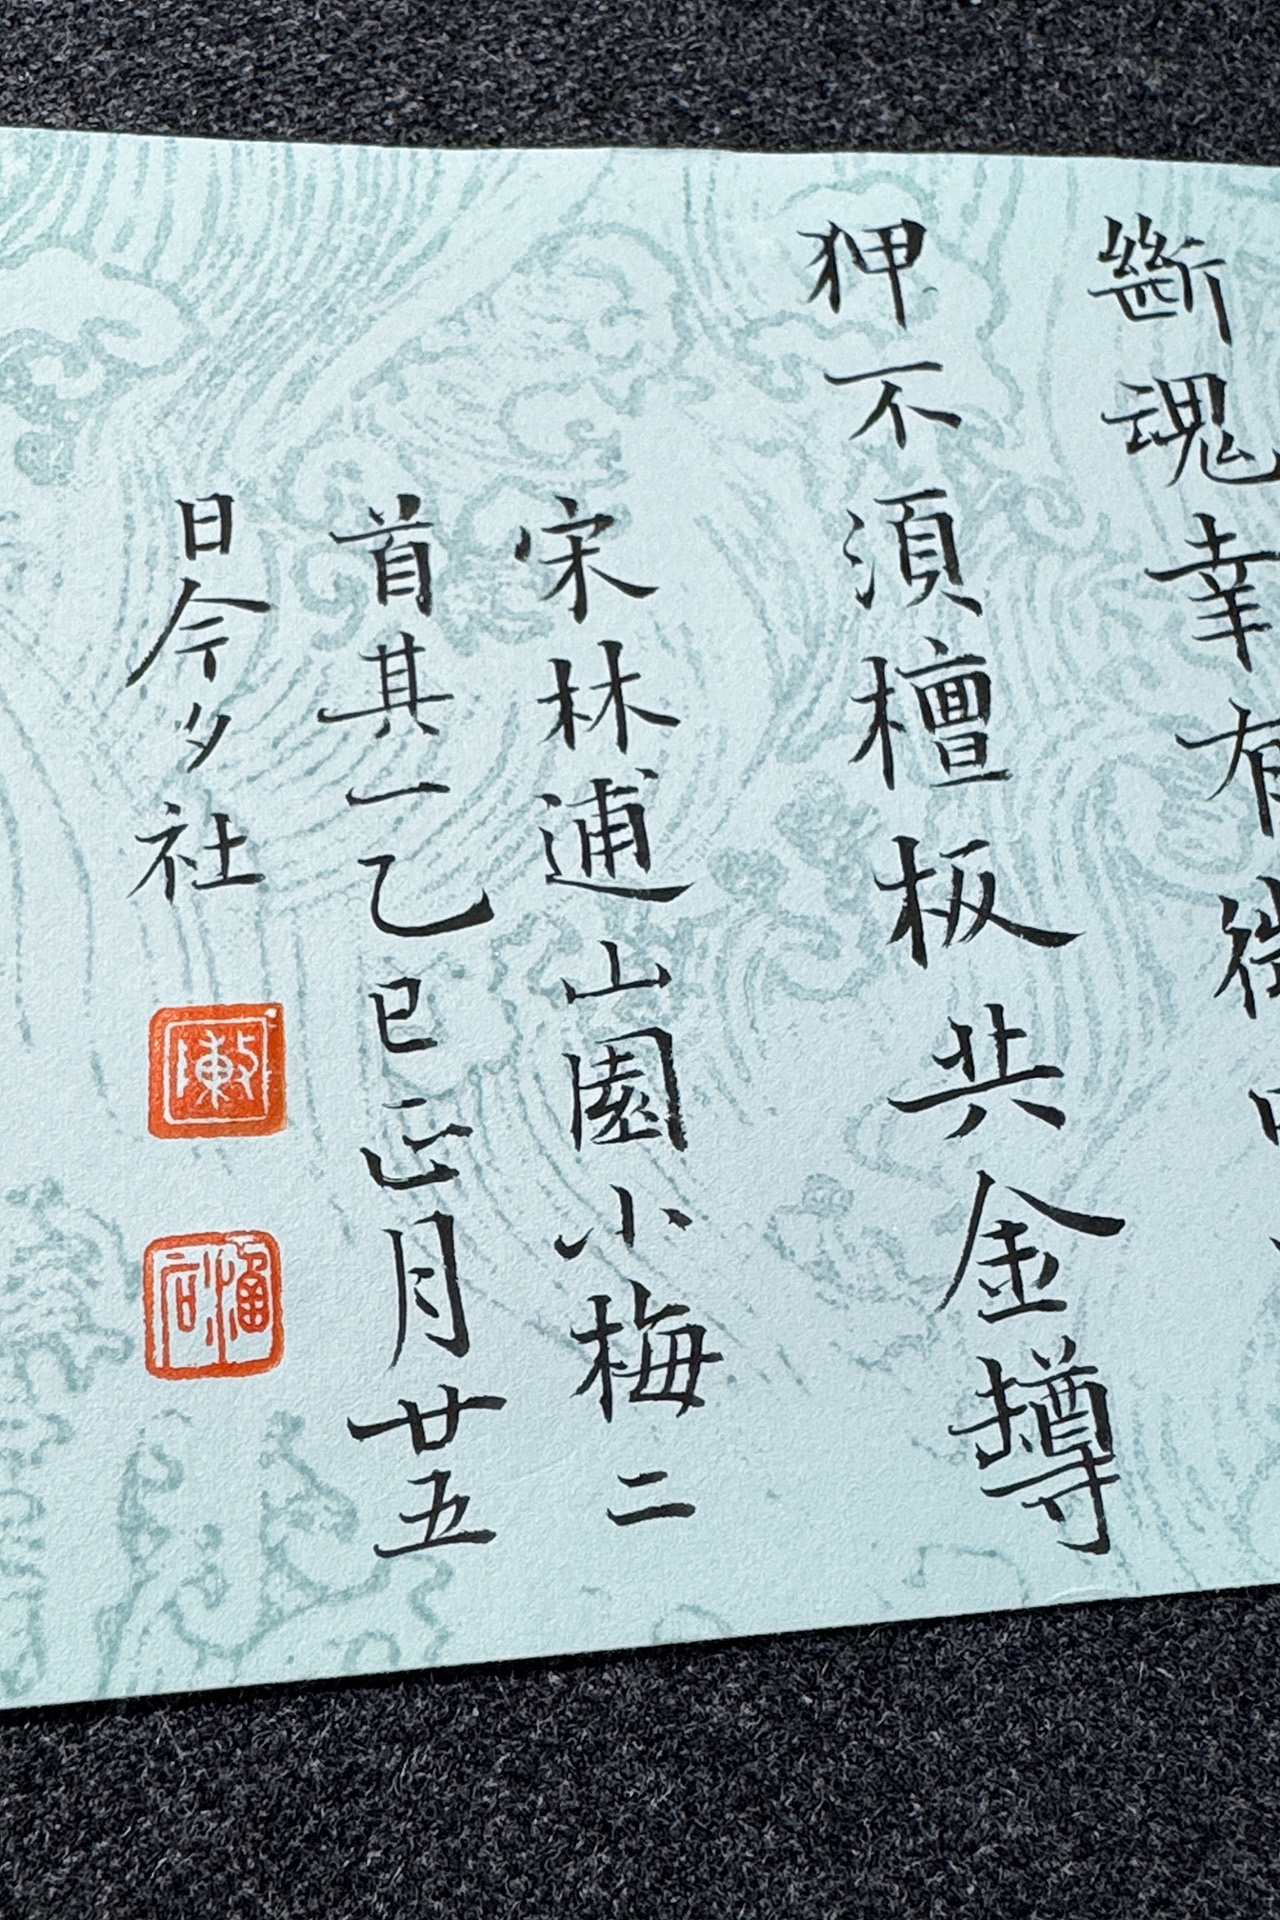 斷魂幸有微
狎不須檀板共金罇
宋林逋山園小梅二
首其一乙巳正月廿五
日今夕社
陳